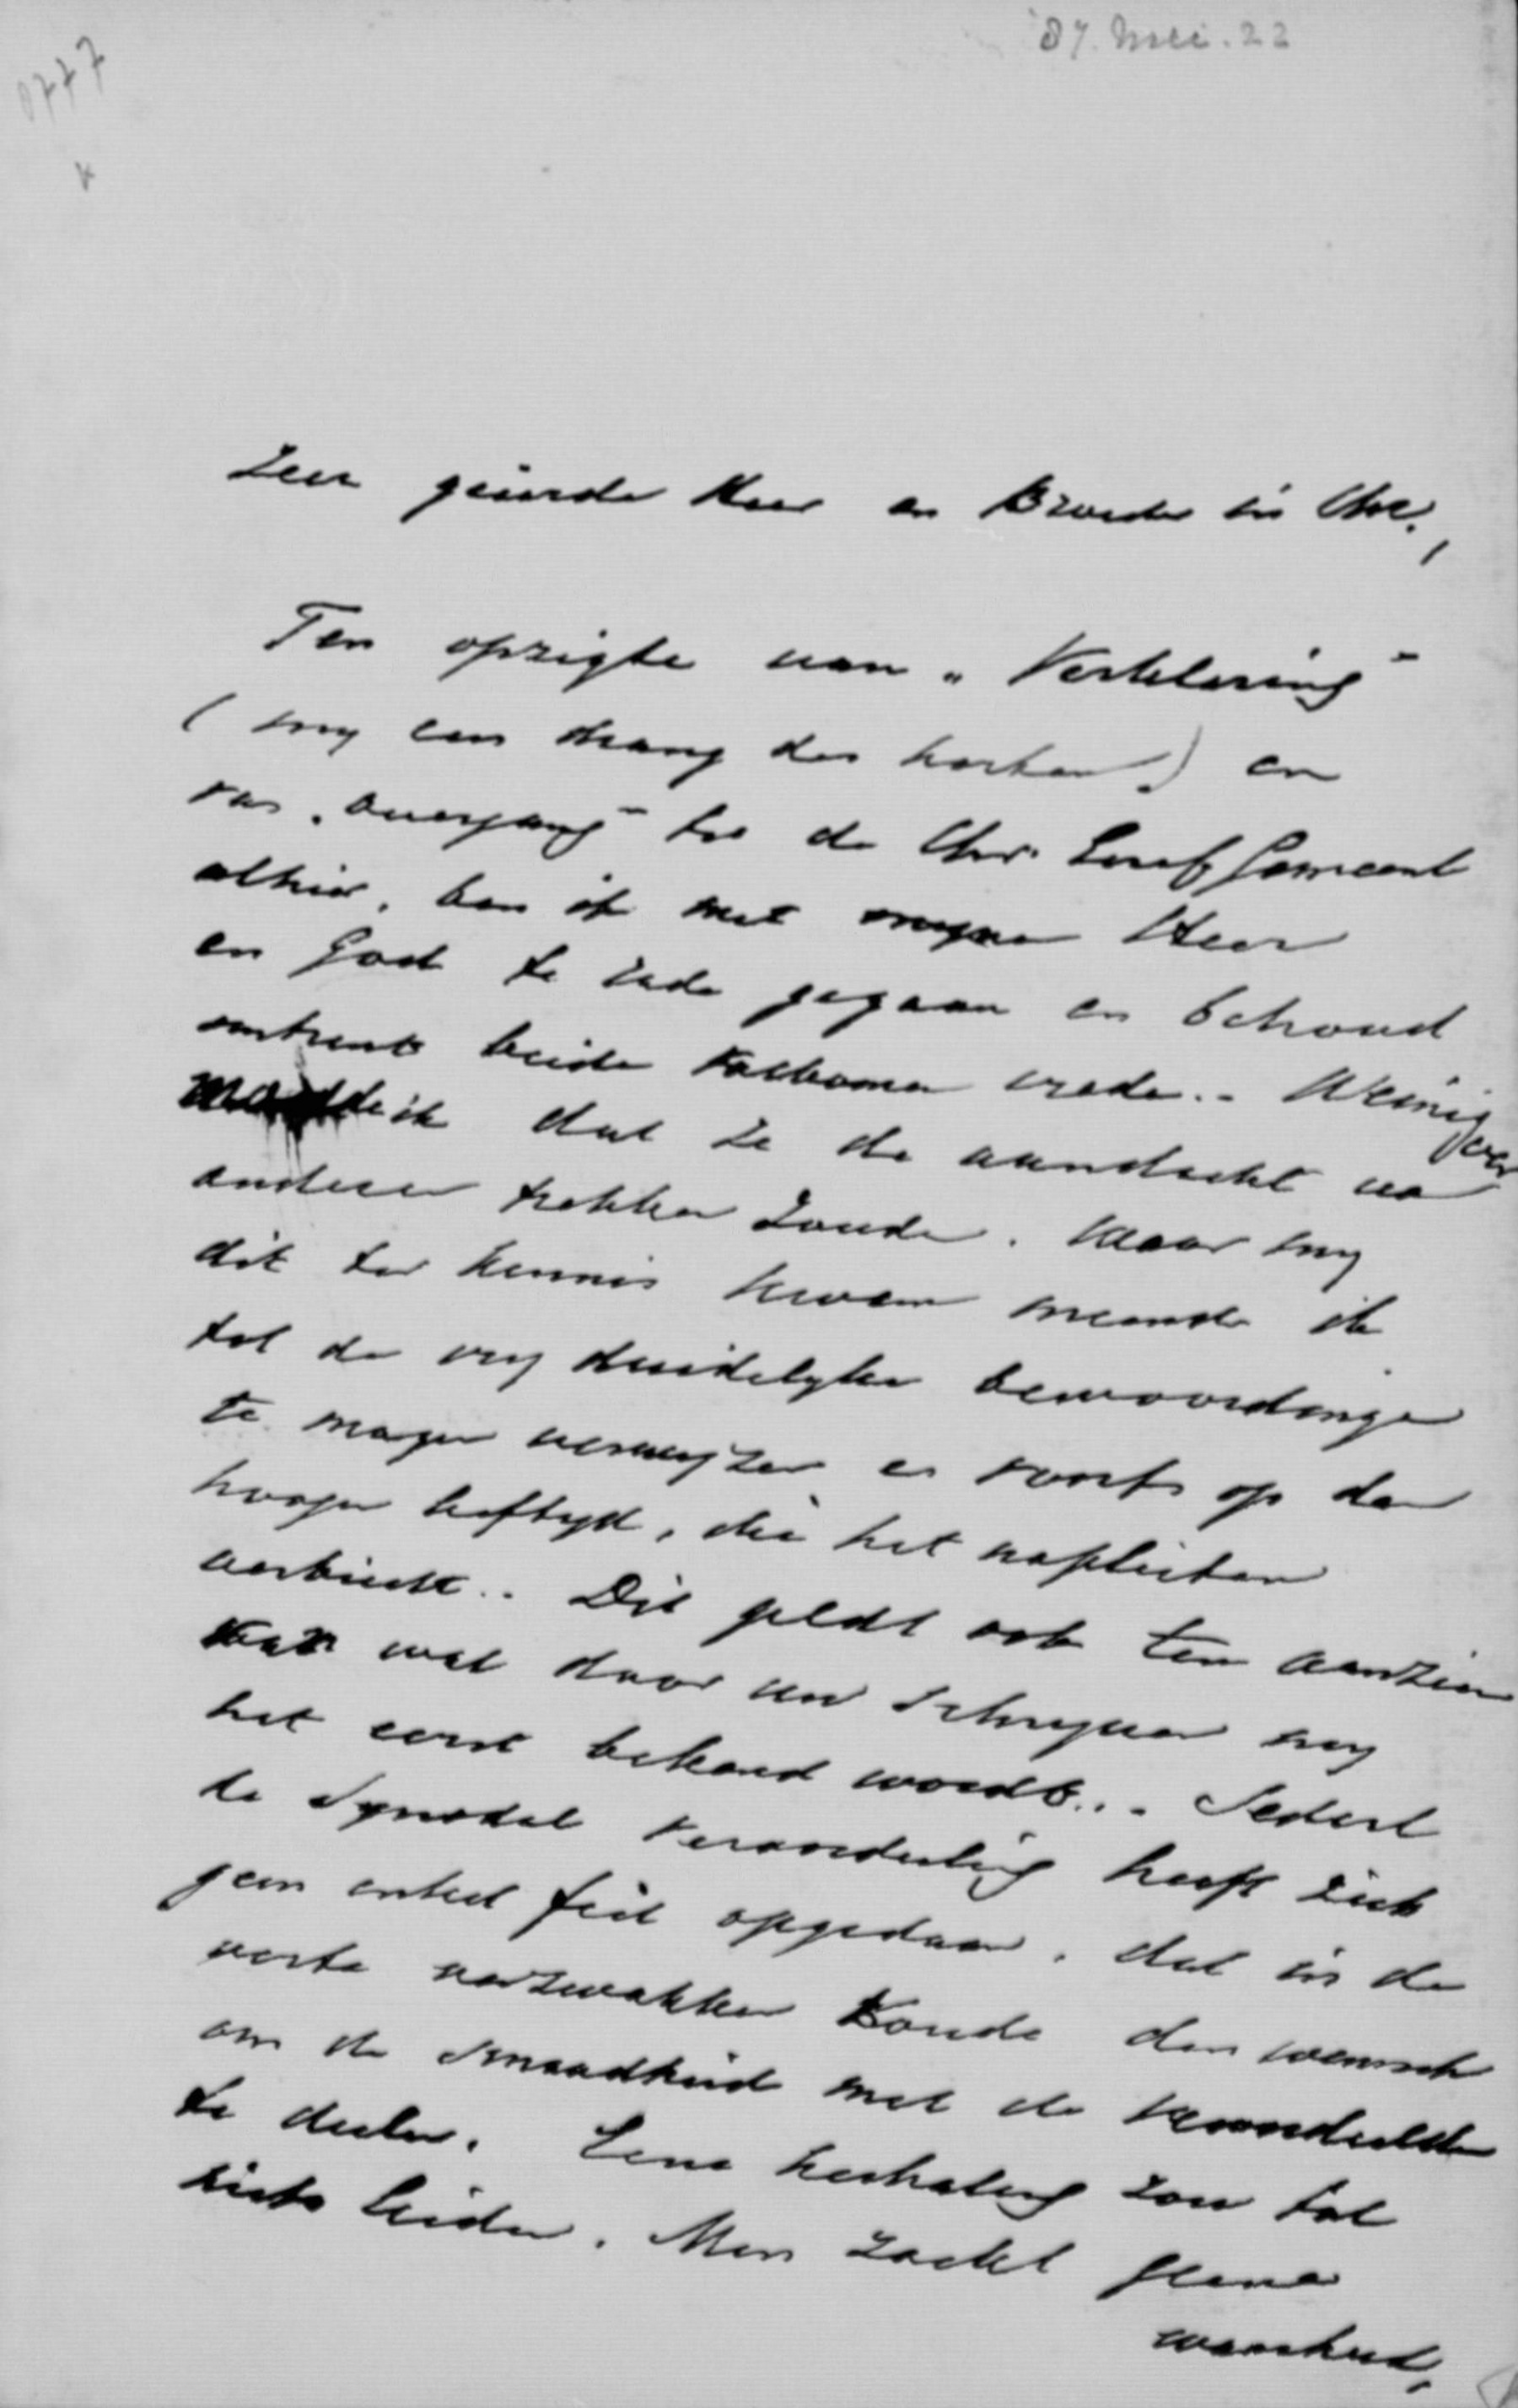 87. Mei. 22
0777
Zeer geëerde Heer en Broeder in Chr.,
Ten opzigte van „Verklaring"
(my een drang des harten) en
van „overgang" tot de Chr. Geref Gemeente
alhier, ben ik met mynen Heer
en God te rade gegaan en behoud
omtrent beide volkomen vrede.. Weinig
ik dat ze de aandacht van
anderen trekken zoude. Waar my
dit ter kennis kwam meende ik
tot de vry duidelyke bewoordingen
te mogen verwyzen en voorts op den
hoogen leeftyd, die het napleiten
verbiedt.. Dit geldt ook ten aanzien
van wat door uw schryven my
het eerst bekend wordt... Sedert
de Synodale veroordeeling heeft zich
geen enkel feit opgedaan, dat in de
verte verzwakken konde den wensch
om de smaadheid met de veroordeelden
te deelen. Eene herhaling zou tot
niets leiden. Men zoekt geene
waarheid,